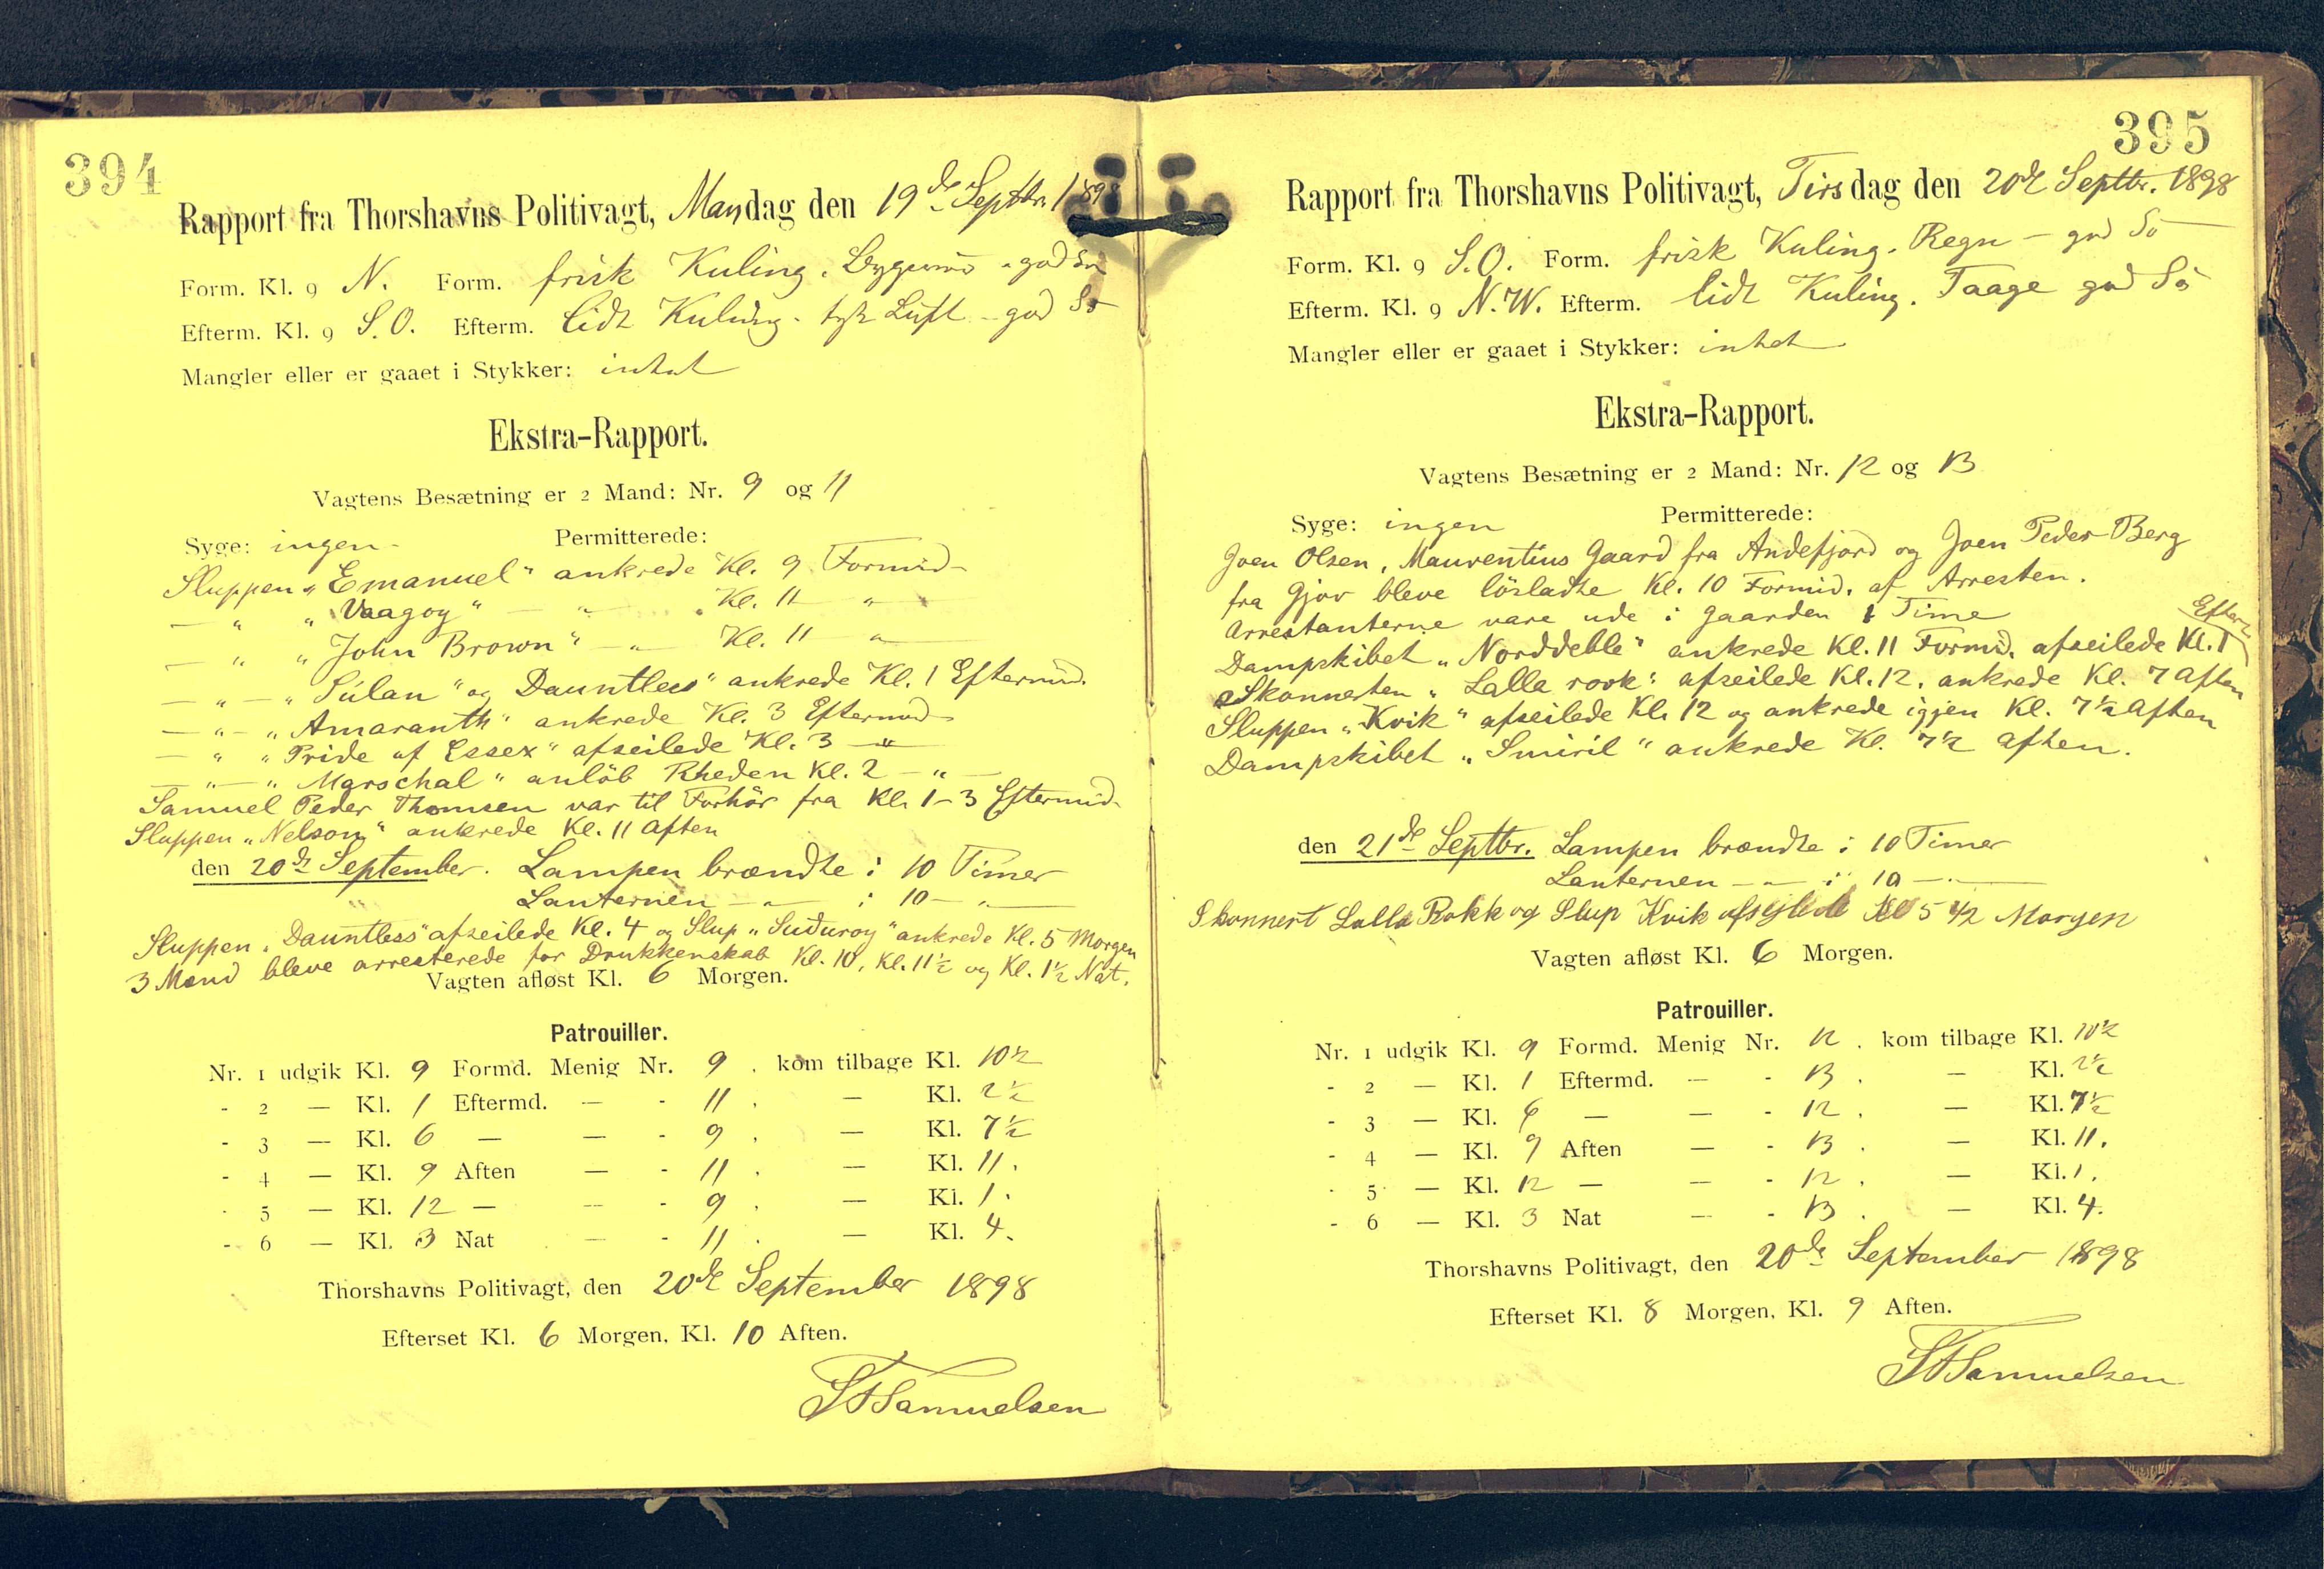 394
Rapport fra Thorshavns Politivagt, Mandag den 19de Septbr. 1898
Form. Kl. 9 N. Form. frisk Kuling. - god Sö
Efterm. Kl. 9 S.O. Efterm. lidt Kuling - tyk Luft - god Sö
Mangler eller er gaaet i Stykker: intet
Ekstra-Rapport.
Vagtens Besætning er 2 Mand: Nr. 9 og 11
Syge: ingen - Permitterede:
Sluppen „Emanuel“ ankrede Kl. 9 Formid-
— „ „Vaagoy“ — „ — Kl. 11 — „ —
— „ „John Brown“ — „ — Kl. 11 — „ —
— „ — „Súlan“ og Dauntless“ ankrede Kl. 1 Eftermid.
— „ — „Amaranth“ ankrede Kl. 3 Eftermid-
— „ „Pride of Essex“ afseilede Kl. 3 — „ —
— „ — „Marschal“ anlöb Rheden Kl. 2 — „ —
Samuel Peder Thomsen var til Forhör fra Kl. 1-3 Eftermid-
Sluppen „Nelson“ ankrede Kl. 11 Aften
den 20de September. Lampen brændte i 10 Timer
Lanternen — „ — i 10 — „ —
Sluppen „Dauntless“ afseilede Kl. 4 og Slup „Suduroy“ ankrede Kl. 5 Morgen
3 Mænd bleve arresterede for Drukkenskab Kl. 10, Kl. 11½ og Kl. 1½ Nat.
Vagten afløst Kl. 6 Morgen.
Patrouiller.
Nr. 1 udgik Kl. 9 Formd. Menig Nr. 9 . kom tilbage Kl. 10½
- 2 — Kl. 1 Eftermd. — - 11 . — Kl. 2½
- 3 — Kl. 6 — — - 9 . — Kl. 7½
- 4 — Kl. 9 Aften — - 11 . — Kl. 11.
- 5 — Kl. 12 — — - 9 . — Kl. 1.
- 6 — Kl. 3 Nat — - 11 . — Kl. 4.
Thorshavns Politivagt, den 20de September 1898
Efterset Kl. 6 Morgen, Kl. 10 Aften.
Samuelsen
395
Rapport fra Thorshavns Politivagt, Tirsdag den 20de Septbr. 1898
Form. Kl. 9 S.O. Form. frisk Kuling. Regn - god Sö
Efterm. Kl. 9 N.W. Efterm. lidt Kuling. Taage god Sö
Mangler eller er gaaet i Stykker: intet
Ekstra-Rapport.
Vagtens Besætning er 2 Mand: Nr. 12 og 13
Syge: ingen Permitterede:
Joen Olsen, Maurentius Gaard fra Andefjord og Joen Peder Berg
fra Gjov bleve lösladte Kl. 10 Formid. af Arresten.
Arrestanterne vare ude i Gaarden 1 Time
Dampskibet „Norddeble“ ankrede Kl. 11 Formd. afseilede Kl. 1 Efterm.
Skonnerten „Lalla rook“ afseilede Kl. 12. ankrede Kl. 7 Aften
Sluppen „Kvik“ afseilede Kl. 12 og ankrede igjen Kl. 7½ Aften
Dampskibet „Smiril“ ankrede Kl. 7½ Aften.
den 21de Septbr. Lampen brændte i 10 Timer
Lanternen — „ — i 10 — „ —
Skonnert Lalla Rokk og Slup Kvik afsejlede Kl 5 1/2 Morgen
Vagten afløst Kl. 6 Morgen.
Patrouiller.
Nr. 1 udgik Kl. 9 Formd. Menig Nr. 12 . kom tilbage Kl. 10½
- 2 — Kl. 1 Eftermd. — - 13 . — Kl. 2½
- 3 — Kl. 6 — — - 12 . — Kl. 7½
- 4 — Kl. 9 Aften — - 13 . — Kl. 11.
- 5 — Kl. 12 — — - 12 . — Kl. 1.
- 6 — Kl. 3 Nat — - 13 . — Kl. 4.
Thorshavns Politivagt, den 20de September 1898
Efterset Kl. 8 Morgen, Kl. 9 Aften.
Samuelsen